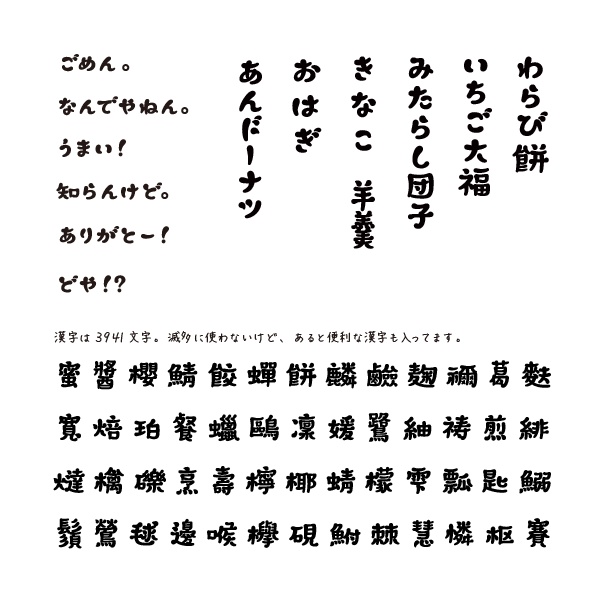 ごめん。
なんでやねん。
うまい！
知らんけど。
ありがとー！
どや！？
わらび餅
いちご大福
みたらし団子
きなこ 羊羹
おはぎ
あんドーナツ
漢字は3941文字。滅多に使わないけど、あると便利な漢字も入ってます。
蜜醬櫻鯖餃蟬餅麟鹼麹禰葛麩
寛焙珀餐蠟鷗凜媛鷺紬祷煎緋
燵檎礫烹壽檸椰蜻檬雫瓢匙鰯
鬚鶯毬邊喉欅硯鮒棘慧憐枢賽